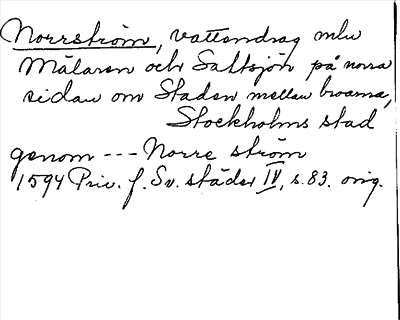 Norrström, vattendrag mlu
Mälaren och Saltsjön på norra
sidan om Staden mellan broarna,
Stockholms stad
genom --- Norre ström
1594 Priv. f. Sv. städer IV, s. 83. orig.